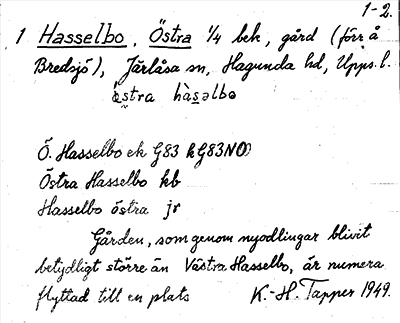 1-2.
1 Hasselbo, Östra 1/4 bek, gård (förr å
Bredsjö), Järlåsa sn, Hagunda hd, Upps. l.
östra hàsəlbo
Ö. Hasselbo ek G83 kG83NO
Östra Hasselbo kb
Hasselbo östra jr
Gården, som genom nyodlingar blivit
betydligt större än Västra Hasselbo, är numera
flyttad till en plats K.-H. Tapper 1949.